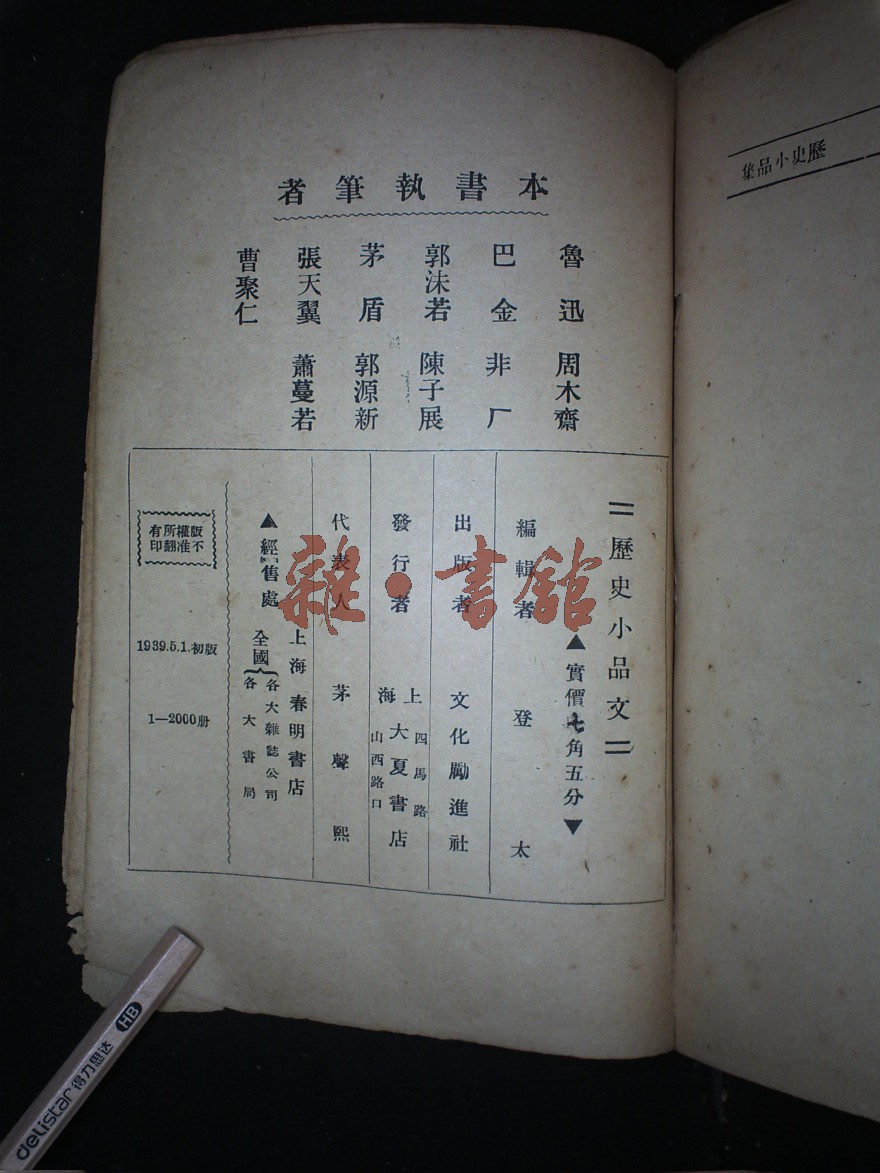 歷史小品集
本書執筆者
魯迅 周木齋
巴金 非厂
郭沬若 陳子展
茅盾 郭源新
張天翼 蕭蔓若
曹聚仁
歷史小品文
▲實價七角五分▼
編輯者 登太
出版者 文化勵進社
發行者 上海 四馬路 山西路口 大夏書店
代表人 茅聲熙
▲經售處
上海春明書店
全國 各大雜誌公司 各大書局
版權所有
不准翻印
1939.5.1.初版
1—2000册
雜·書館
delistar 得力思达 HB